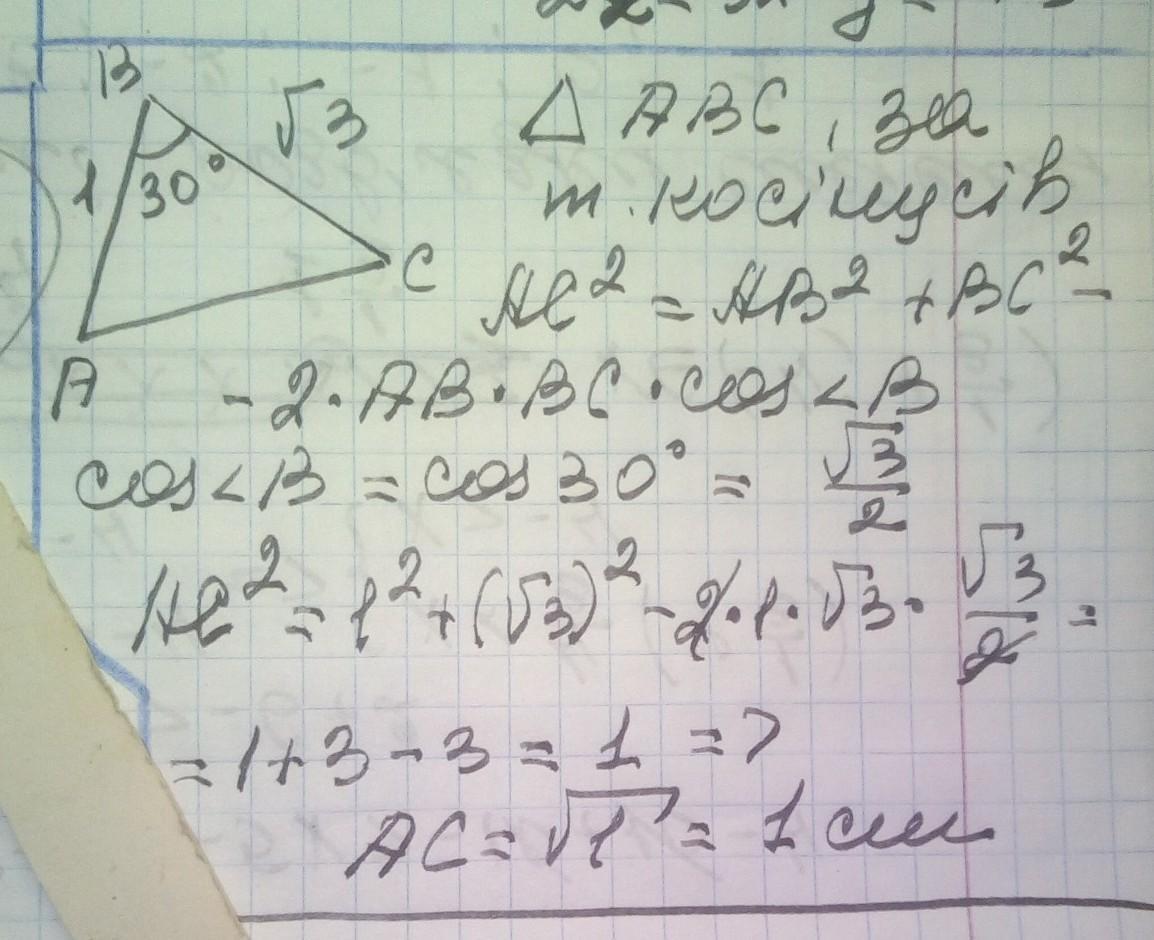 B
√3
1
30°
C
A
△ ABC, за
т. косінусів
AC² = AB² + BC² -
- 2·AB·BC·cos<B
cos<B = cos 30° = √3/2
AC² = 1² + (√3)² - 2·1·√3·√3/2 =
= 1+3-3 = 1 =>
AC = √1 = 1 см